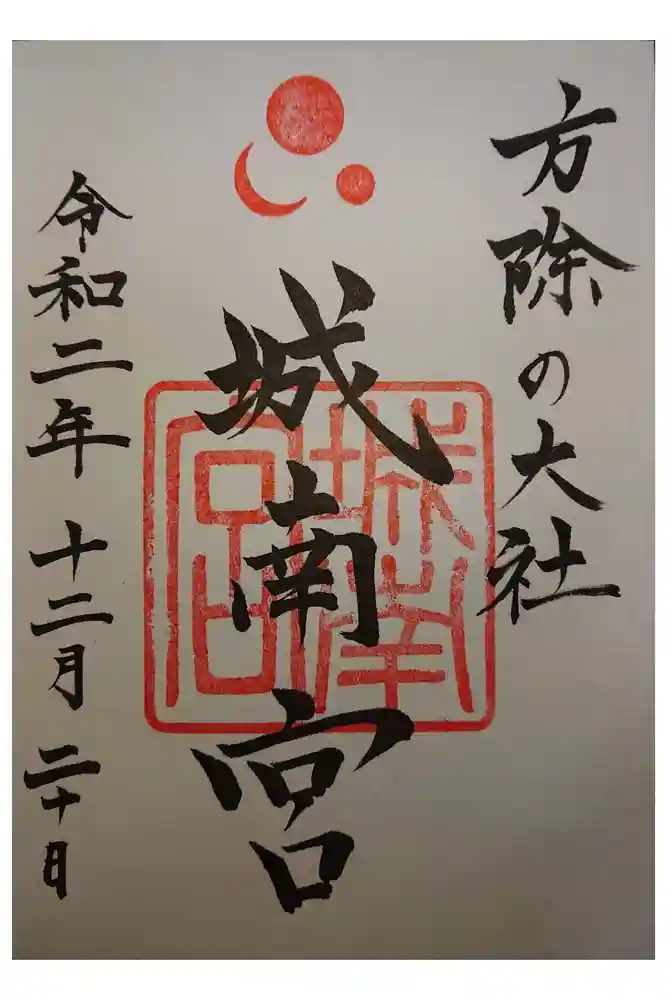 方除の大社
城南宮
城南宮
令和二年 十二月 二十日